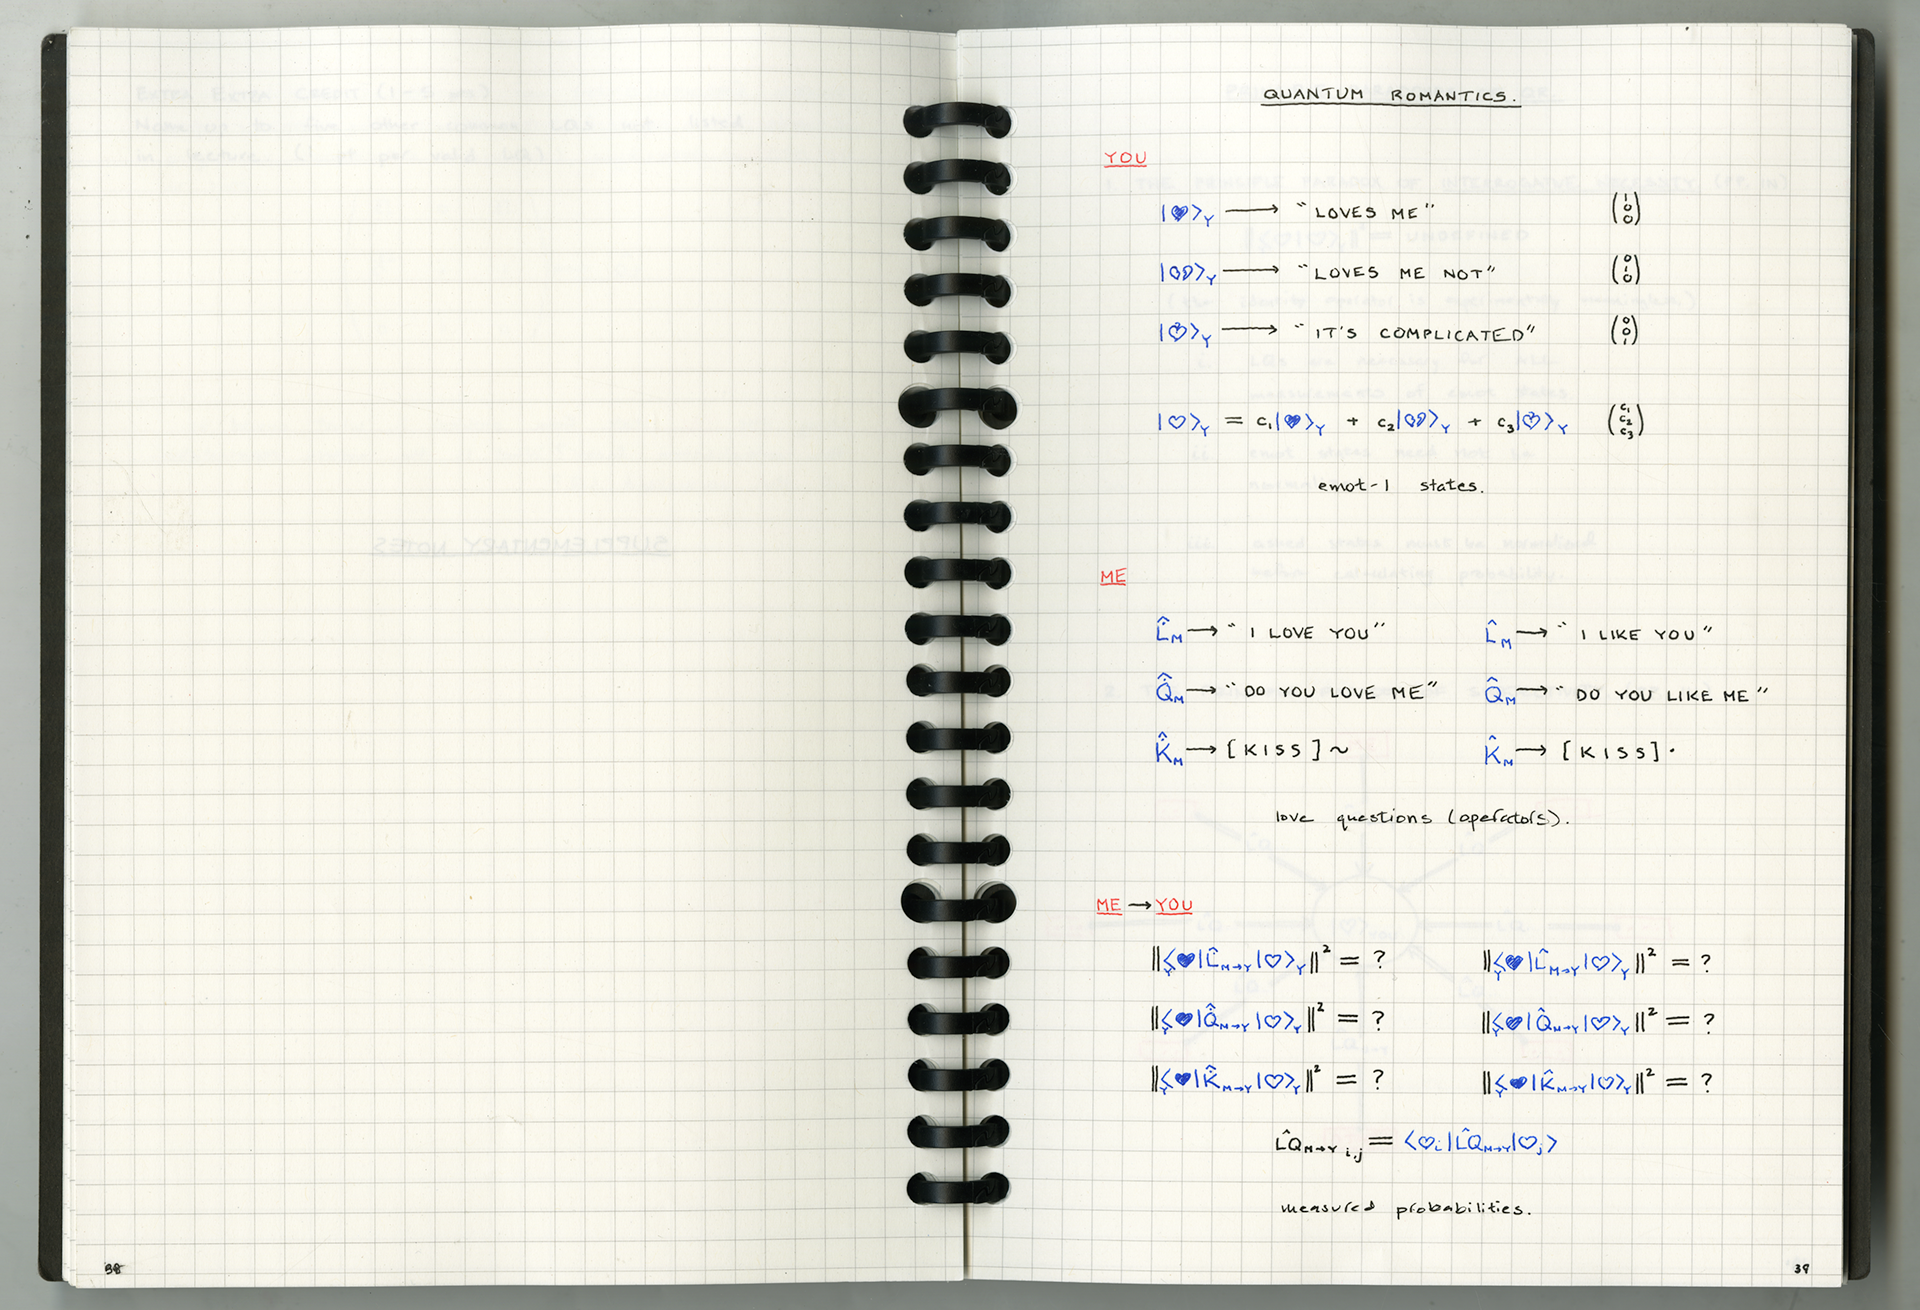 QUANTUM ROMANTICS.
YOU
|♥⟩Y ⟶ "LOVES ME" (1 0 0)
|💔⟩Y ⟶ "LOVES ME NOT" (0 1 0)
|♡?⟩Y ⟶ "IT'S COMPLICATED" (0 0 1)
|♡⟩Y = c₁|♥⟩Y + c₂|💔⟩Y + c₃|♡?⟩Y (c₁ c₂ c₃)
emot-1 states.
ME
L̂̇M ⟶ "I LOVE YOU" L̂M ⟶ "I LIKE YOU"
Q̂̇M ⟶ "DO YOU LOVE ME" Q̂M ⟶ "DO YOU LIKE ME"
K̂̇M ⟶ [KISS]~ K̂M ⟶ [KISS].
love questions (operators).
ME ⟶ YOU
‖Y⟨♥|L̂̇M→Y|♡⟩Y‖² = ? ‖Y⟨♥|L̂M→Y|♡⟩Y‖² = ?
‖Y⟨♥|Q̂̇M→Y|♡⟩Y‖² = ? ‖Y⟨♥|Q̂M→Y|♡⟩Y‖² = ?
‖Y⟨♥|K̂̇M→Y|♡⟩Y‖² = ? ‖Y⟨♥|K̂M→Y|♡⟩Y‖² = ?
L̂QM→Y i,j = ⟨♡i|L̂QM→Y|♡j⟩
measured probabilities.
38
39